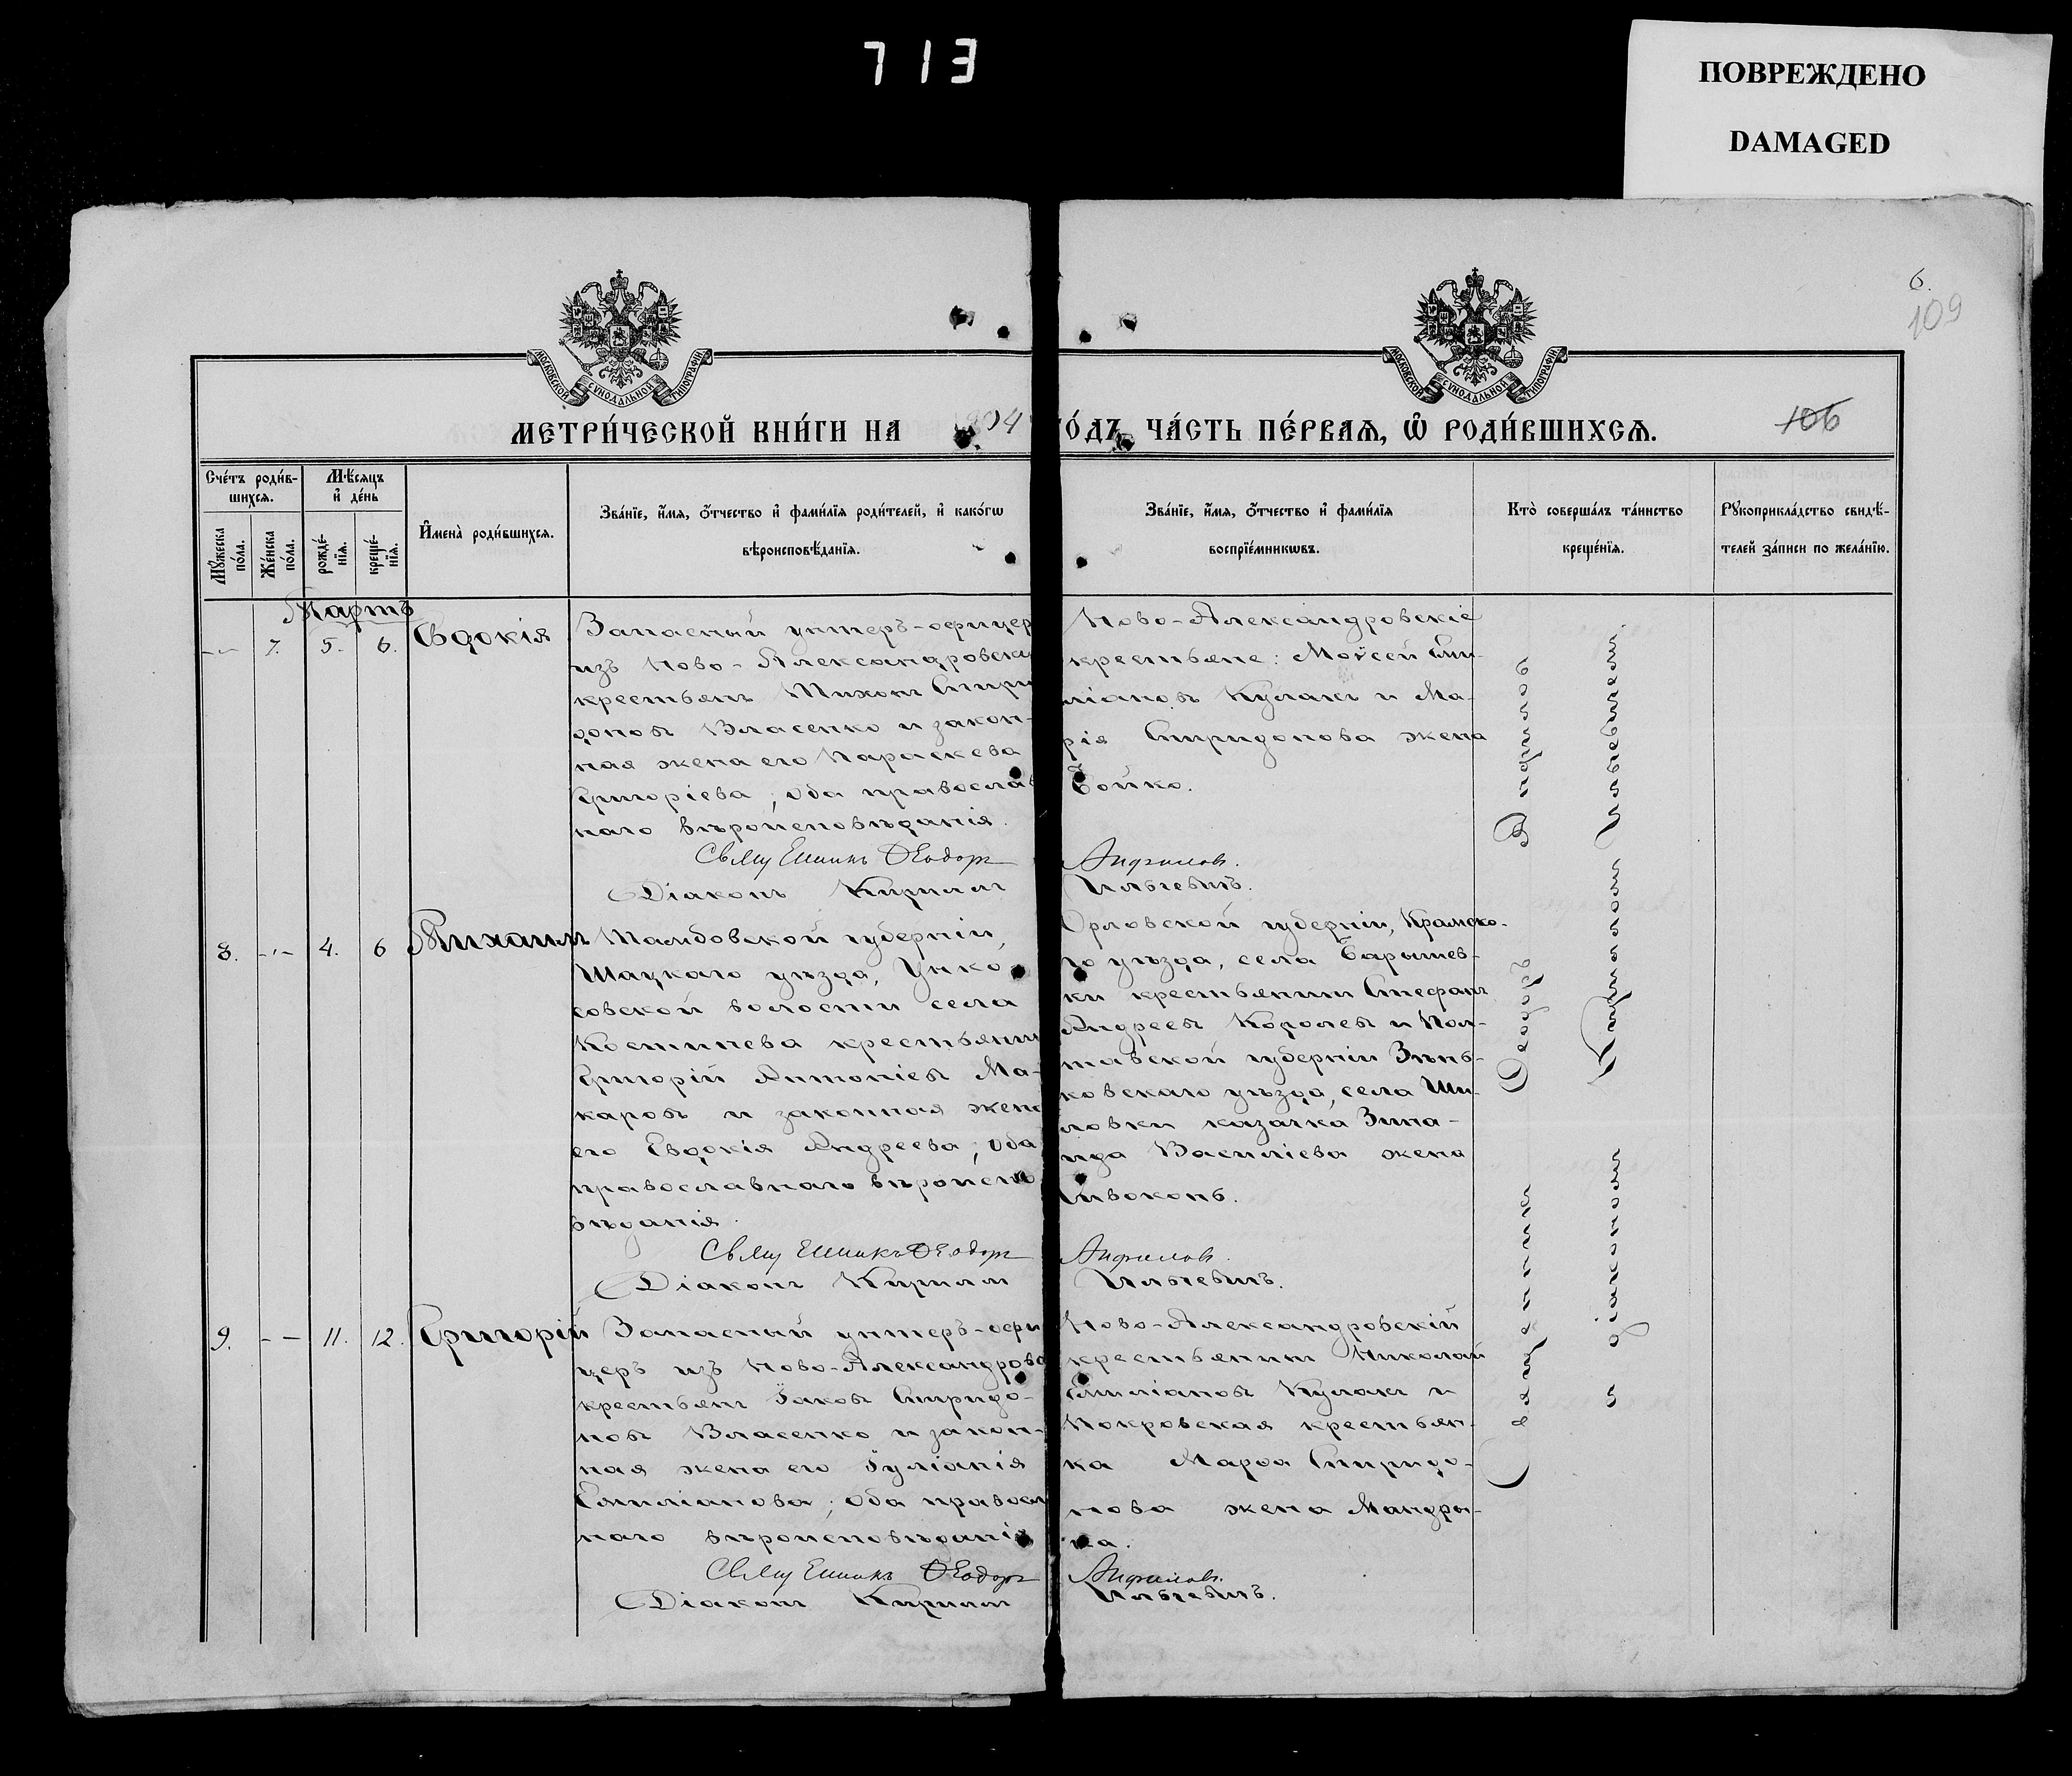 713
ПОВРЕЖДЕНО
DAMAGED
6.
109
МОСКОВСКОЙ СѴНОДАЛЬНОЙ ТИПОГРАФІИ
МОСКОВСКОЙ СѴНОДАЛЬНОЙ ТИПОГРАФІИ
МЕТРИ́ЧЕСКОЙ КНИ́ГИ НА 1904
ГО́ДЪ, ЧА́СТЬ ПЕ́РВАѦ, Ѽ РОДИ́ВШИХСѦ.
106
Сче́тъ роди́вшихсѧ.
Мꙋ́жеска по́ла.
Же́нска по́ла.
Мѣ́сѧцъ и҆ де́нь
рожде́нїѧ.
креще́нїѧ.
И҆мена̀ роди́вшихсѧ.
Зва́нїе, и҆́мѧ, ѻ҆́тчество и҆ фами́лїѧ роди́телей, и҆ како́гѡ
вѣроисповѣ́данїѧ.
Зва́нїе, и҆́мѧ, ѻ҆́тчество и҆ фами́лїѧ
воспрїе́мникѡвъ.
Кто̀ соверша́лъ та́инство
креще́нїѧ.
Рꙋкоприкла́дство свидѣ́-
телей за́писи по жела́нїю.
Мартъ
7. 5. 6. Евдокія
Запасный унтеръ-офицер
изъ Ново-Александровски
крестьянъ Тихонъ Спири
доновъ Власенко и закон-
ная жена его Параскева
Григоріева; оба православ
наго вѣроисповѣданія.
Священникъ Ѳеодоръ
Діаконъ Кириллъ
Ново-Александровскіе
крестьяне: Моѵсей Еми-
ліановъ Кулакъ и Ма-
рія Спиридонова жена
Бойко.
Анфиловъ.
Ильчевичъ.
8. 4. 6 Михаилъ
Тамбовской губерніи,
Шацкаго уѣзда, Унко
совской волости села
Костинева крестьянин
Григорій Антоніевъ Ма-
каровъ и законная жена
его Евдокія Андреева; оба
православнаго вѣроиспо
вѣданія.
Священникъ Ѳеодоръ
Діаконъ Кириллъ
Орловской губерніи, Крамско-
го уѣзда, села Барышев-
ки крестьянинъ Стефанъ
Андреевъ Королевъ и Пол-
тавской губерніи Зѣнь-
ковскаго уѣзда, села Ши-
ловки казачка Зина-
ида Василіева жена
Сивоконь.
Анфиловъ.
Ильчевичъ.
9. 11. 12. Григорій
Запасный унтеръ-офи
церъ изъ Ново-Александровс
крестьянъ Іаковъ Спиридо-
новъ Власенко и закон-
ная жена его Іуліанія
Емиліанова; оба правосл
наго вѣроисповѣданія
Священникъ Ѳеодоръ
Діаконъ Кириллъ
Ново-Александровскій
крестьянинъ Николай
Емиліановъ Кулакъ и
Покровская крестьян-
ка Марѳа Спиридо-
нова жена Мандры-
ка.
Анфиловъ.
Ильчевичъ.
Священникъ Ѳеодоръ Анфиловъ
съ діакономъ Кирилломъ Ильчевичемъ.